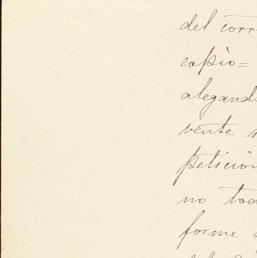 del corr
copiò=
alegand
vente
peticion
no tod
forme